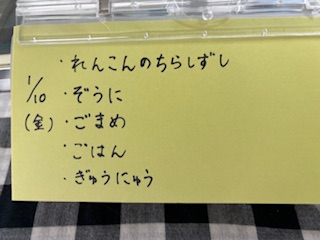 ・れんこんのちらしずし
1/10 ・ぞうに
(金) ・ごまめ
・ごはん
・ぎゅうにゅう